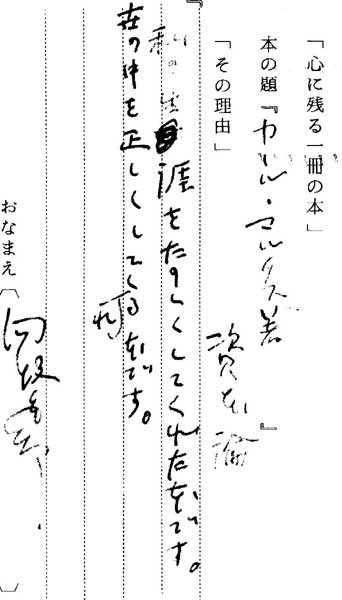 「心に残る一冊の本」
本の題『カール・マルクス著
資本論』
「その理由」
私の生涯をたのしくしてくれた本です。
世の中を正しくしてくれる本です。
おなまえ〔向坂逸郎〕